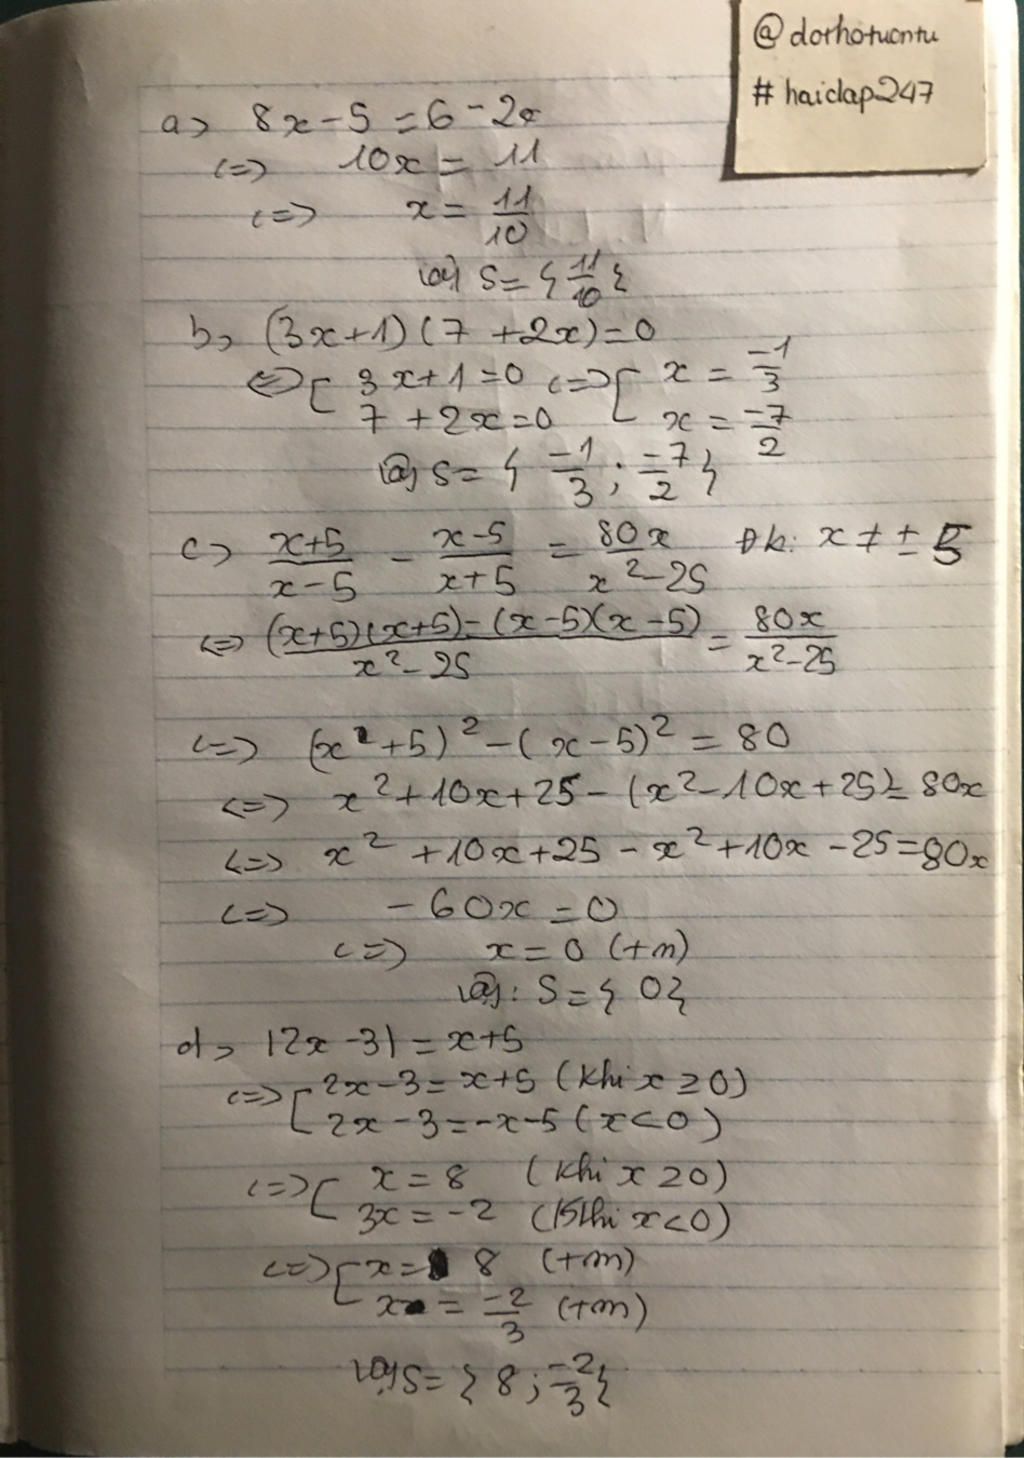 @dorhotuontu
# haiclap247
a> 8x - 5 = 6 - 2x
<=> 10x = 11
<=> x = 11/10
Vậy S = { 11/10 }
b, (3x+1)(7 + 2x) = 0
<=> [ 3x+1=0 <=> [ x = -1/3
7 + 2x = 0 x = -7/2
Vậy S = { -1/3 ; -7/2 }
c> x+5/x-5 - x-5/x+5 = 80x/x²-25 Đk: x ≠ ± 5
<=> (x+5)(x+5) - (x-5)(x-5)/x²-25 = 80x/x²-25
<=> (x²+5)² - (x-5)² = 80
<=> x²+10x+25 - (x²-10x+25) = 80x
<=> x² +10x+25 - x²+10x -25 = 80x
<=> - 60x = 0
<=> x = 0 (+m)
Vậy: S = { 0 }
d> |2x - 3| = x+5
<=> [ 2x-3 = x+5 (khi x ≥ 0)
2x - 3 = -x-5 (x<0)
<=> [ x = 8 (khi x ≥ 0)
3x = -2 (Khi x<0)
<=> [ x = 8 (+m)
x = -2/3 (+m)
Vậy S = { 8 ; -2/3 }